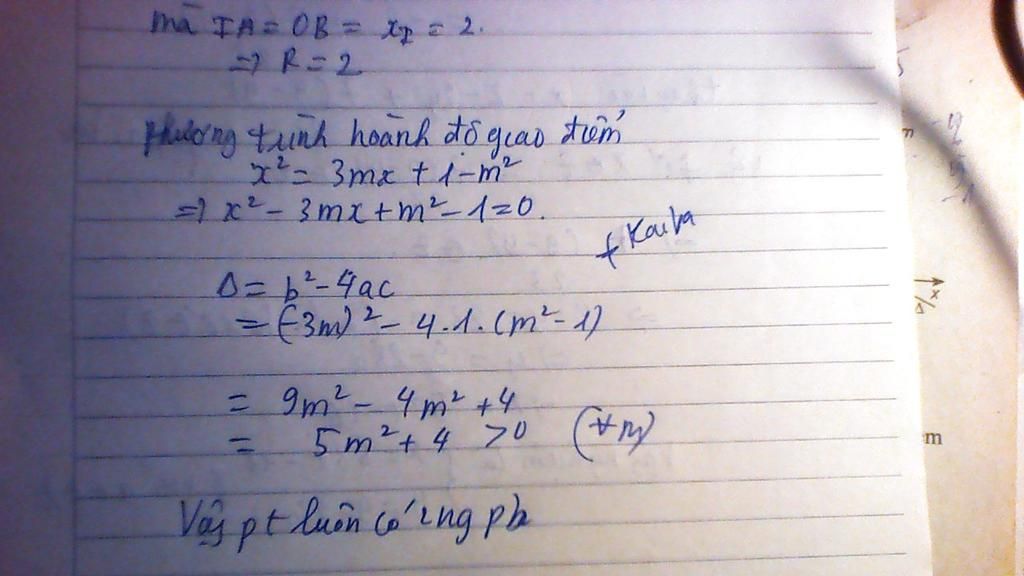 mà IA = OB = x_I = 2.
=> R = 2
phương trình hoành độ giao điểm
x² = 3mx + 1 - m²
=> x² - 3mx + m² - 1 = 0.
Δ = b² - 4ac
= (-3m)² - 4.1.(m² - 1)
= 9m² - 4m² + 4
= 5m² + 4 > 0 (∀m)
m
Vậy pt luôn có 2 ng pb